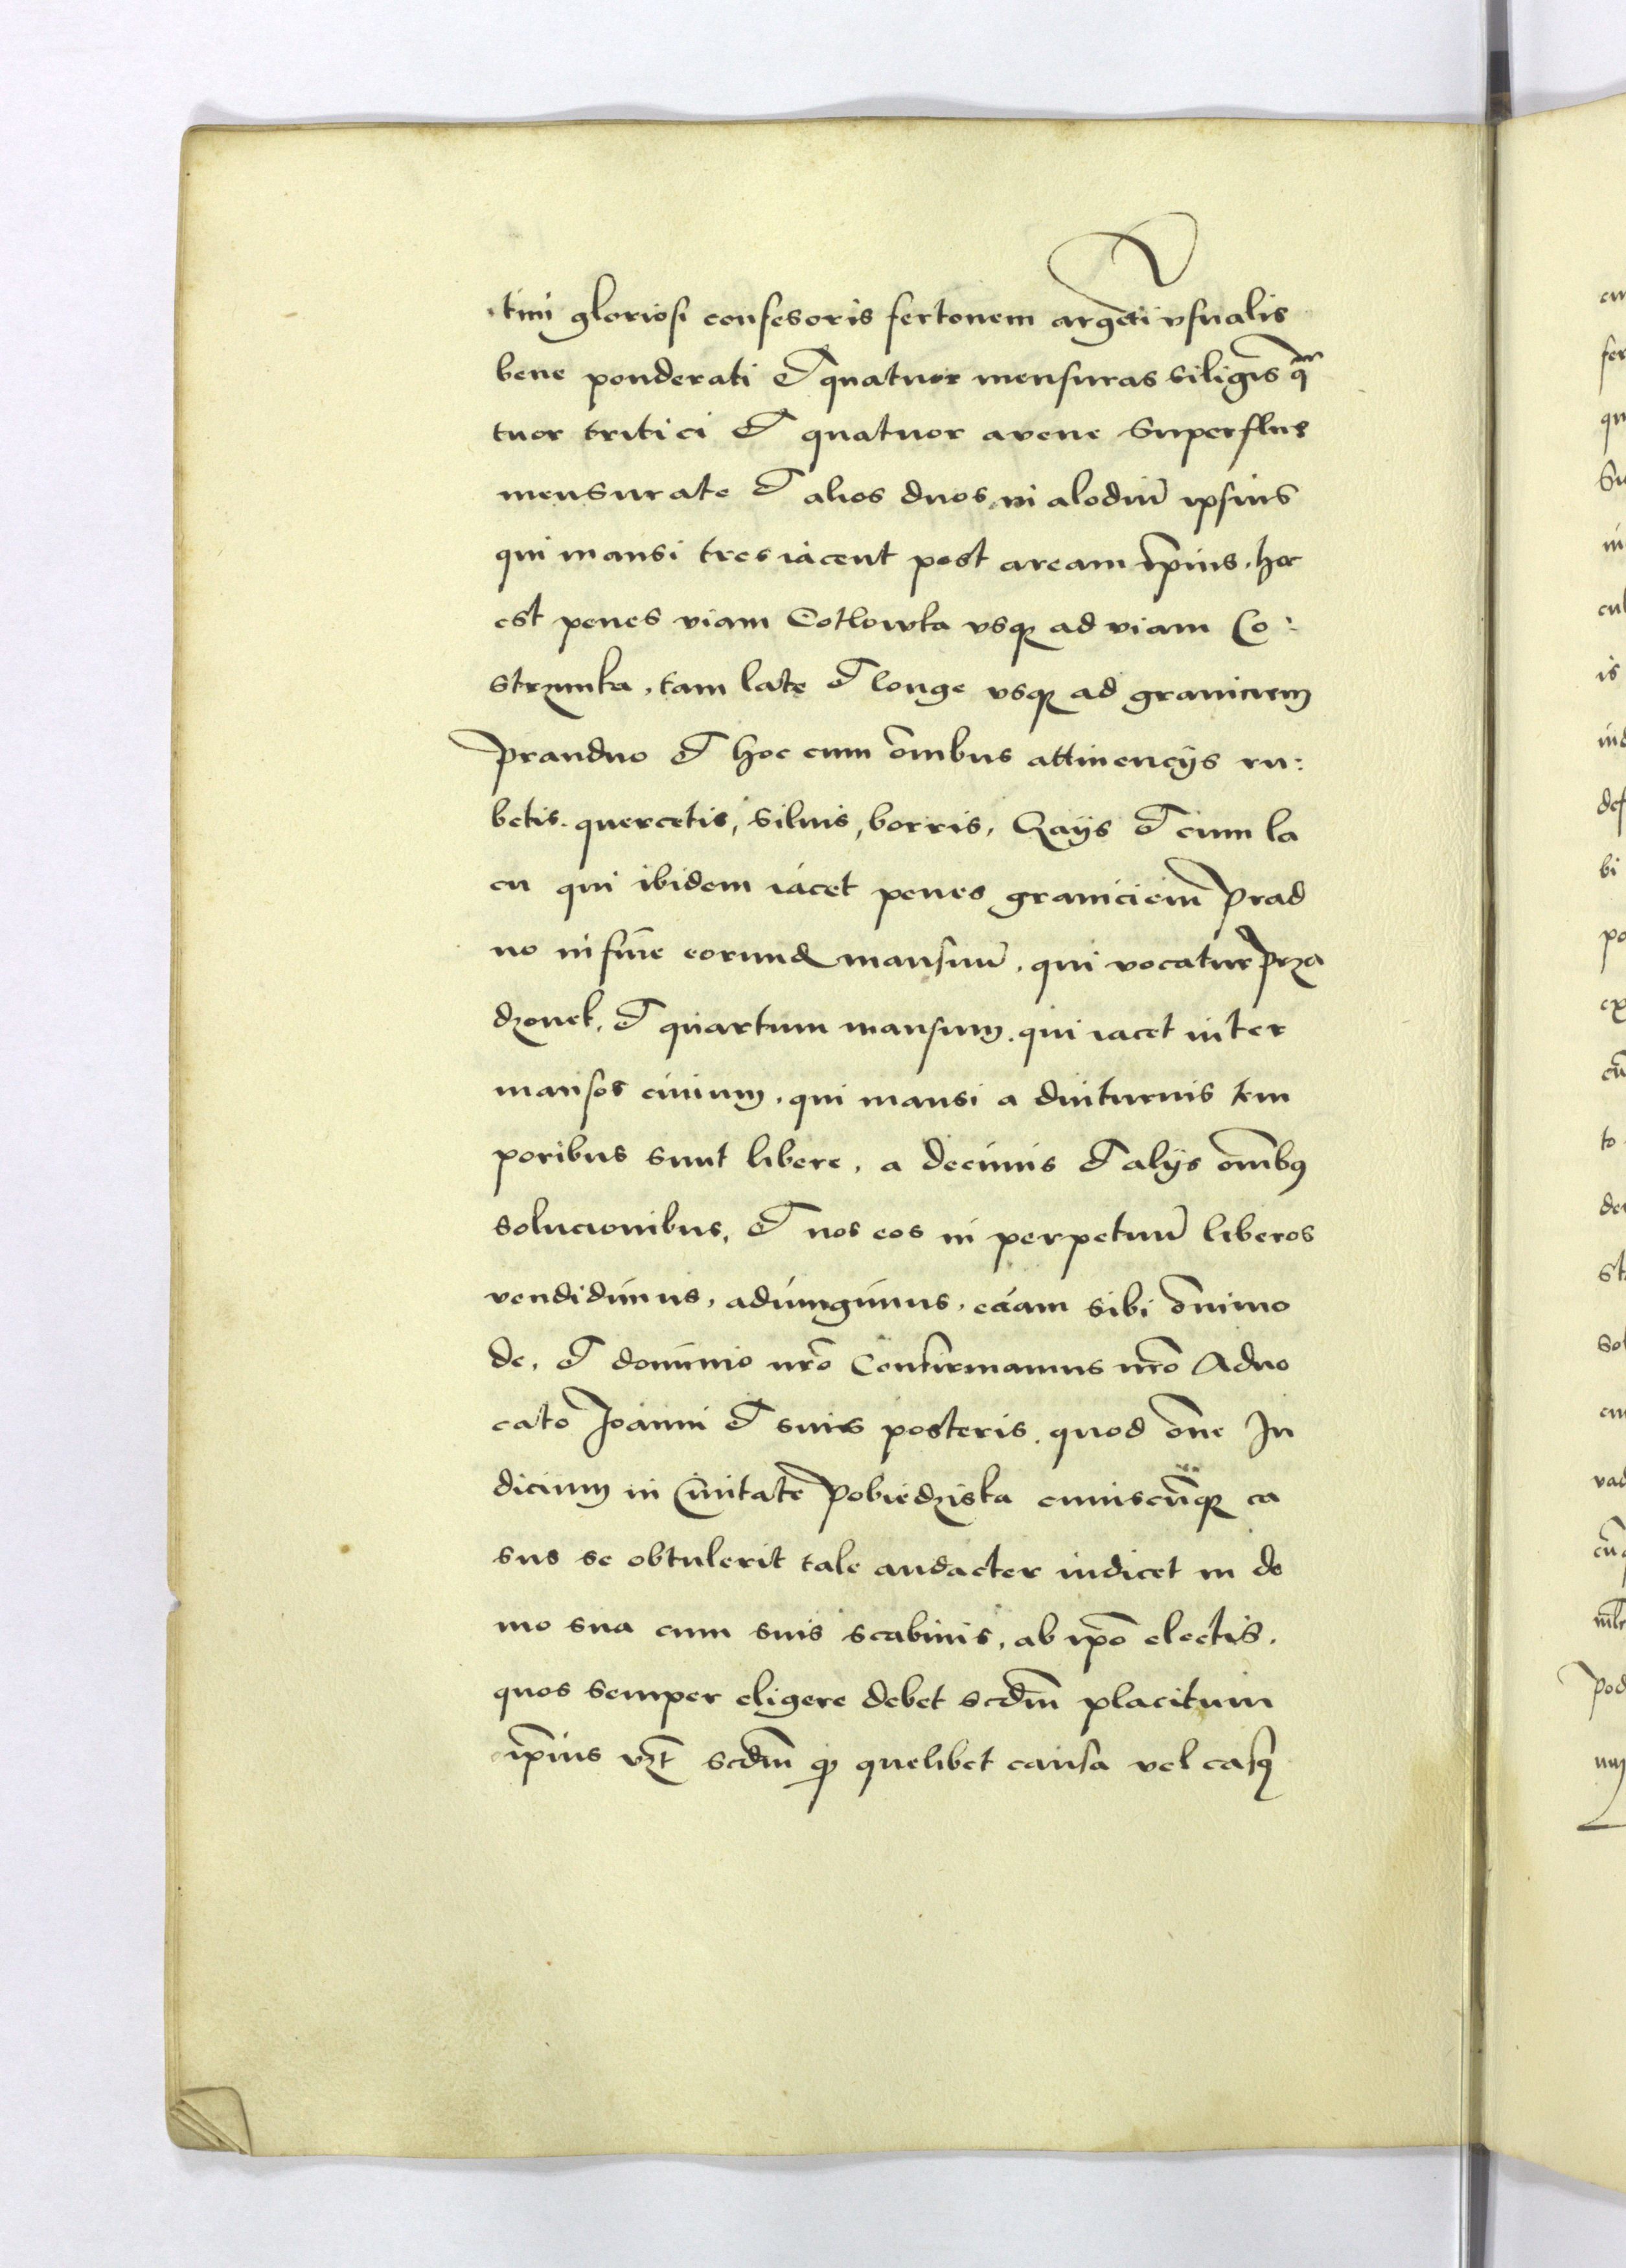 tini gloriosi confesoris fertonem argēti vsualis
bene ponderati et quatuor mensuras siligīs qᵃ
tuor tritici et quatuor avene superflue
mensurate et alios duos in alodiū ipsius
qui mansi tres iacent post aream ip̄ius. hoc
est penes viam Cotlowka vsqꝫ ad viam Co:
strzinka, tam late et longe vsqꝫ ad graniciem
Prandno et hoc cum om̄ibus attinencijs ru:
betis. quercetis, siluis, borris, Gajis et cum la
cu qui ibidem iacet penes graniciem Prad
no in fine eorundꝫ mansuū, qui vocatur Prza
dzonek, et quartum mansum. qui iacet inter
mansos ciuium, qui mansi a diuturnis tem
poribus sunt libere, a decimis et alijs om̄ibꝯ
solucionibus, et nos eos in perpetuū liberos
vendidimus, adiungimus, eciam sibi om̄imo
de, et dominio nr̄o Confirmamus nr̄o Aduo
cato Joanni et suis posteris. quod om̄e Iu
dicium in Ciuitate Pobiedziska cuiuscūqꝫ ca
sus se obtulerit tale audacter iudicet in do
mo sua cum suis scabinis, ab ip̄o electis.
quos semper eligere debet scdm̄ placitum
ip̄ius vꝫt scdm̄ qꝫ quelibet causa vel casꝯ